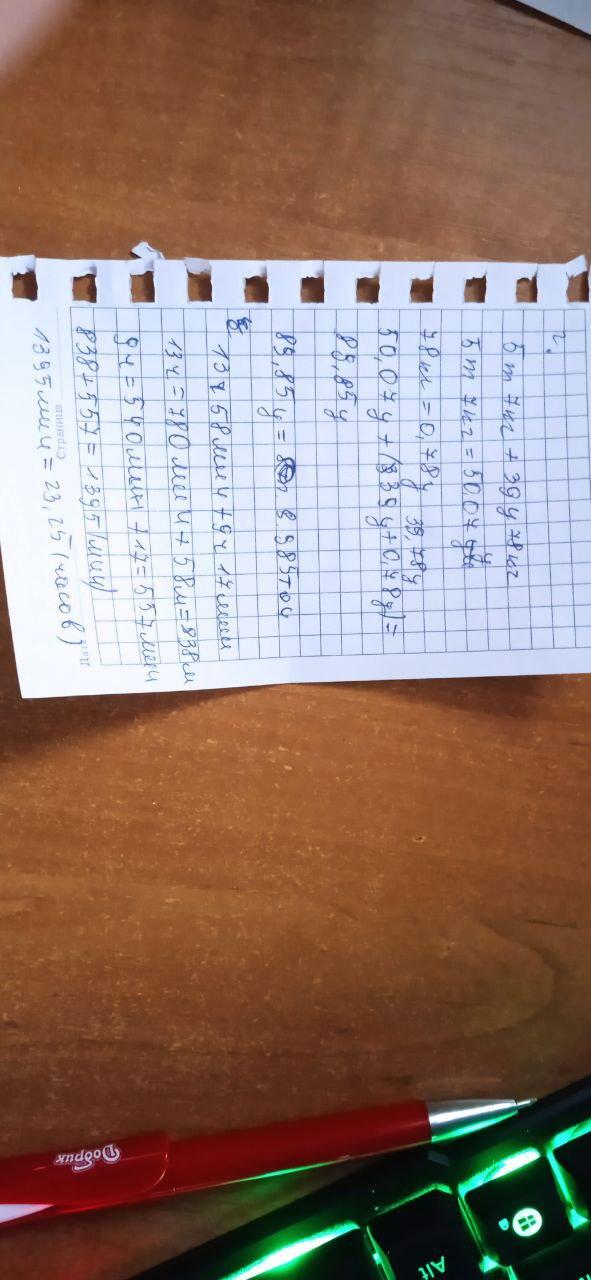 2.
5т 7кг + 39ц 78кг
5т 7кг = 50,07ц
78кг = 0,78ц 39,78ц
50,07ц + (39ц + 0,78ц) =
89,85ц
89,85ц = 8.985тон
13ч 58мин + 9ч 17мин
13ч = 780мин + 58м = 838м
9ч = 540мин + 17 = 557мин
838 + 557 = 1395(мин)
Страница
1395мин = 23,25 (часов)
Добрик
Alt